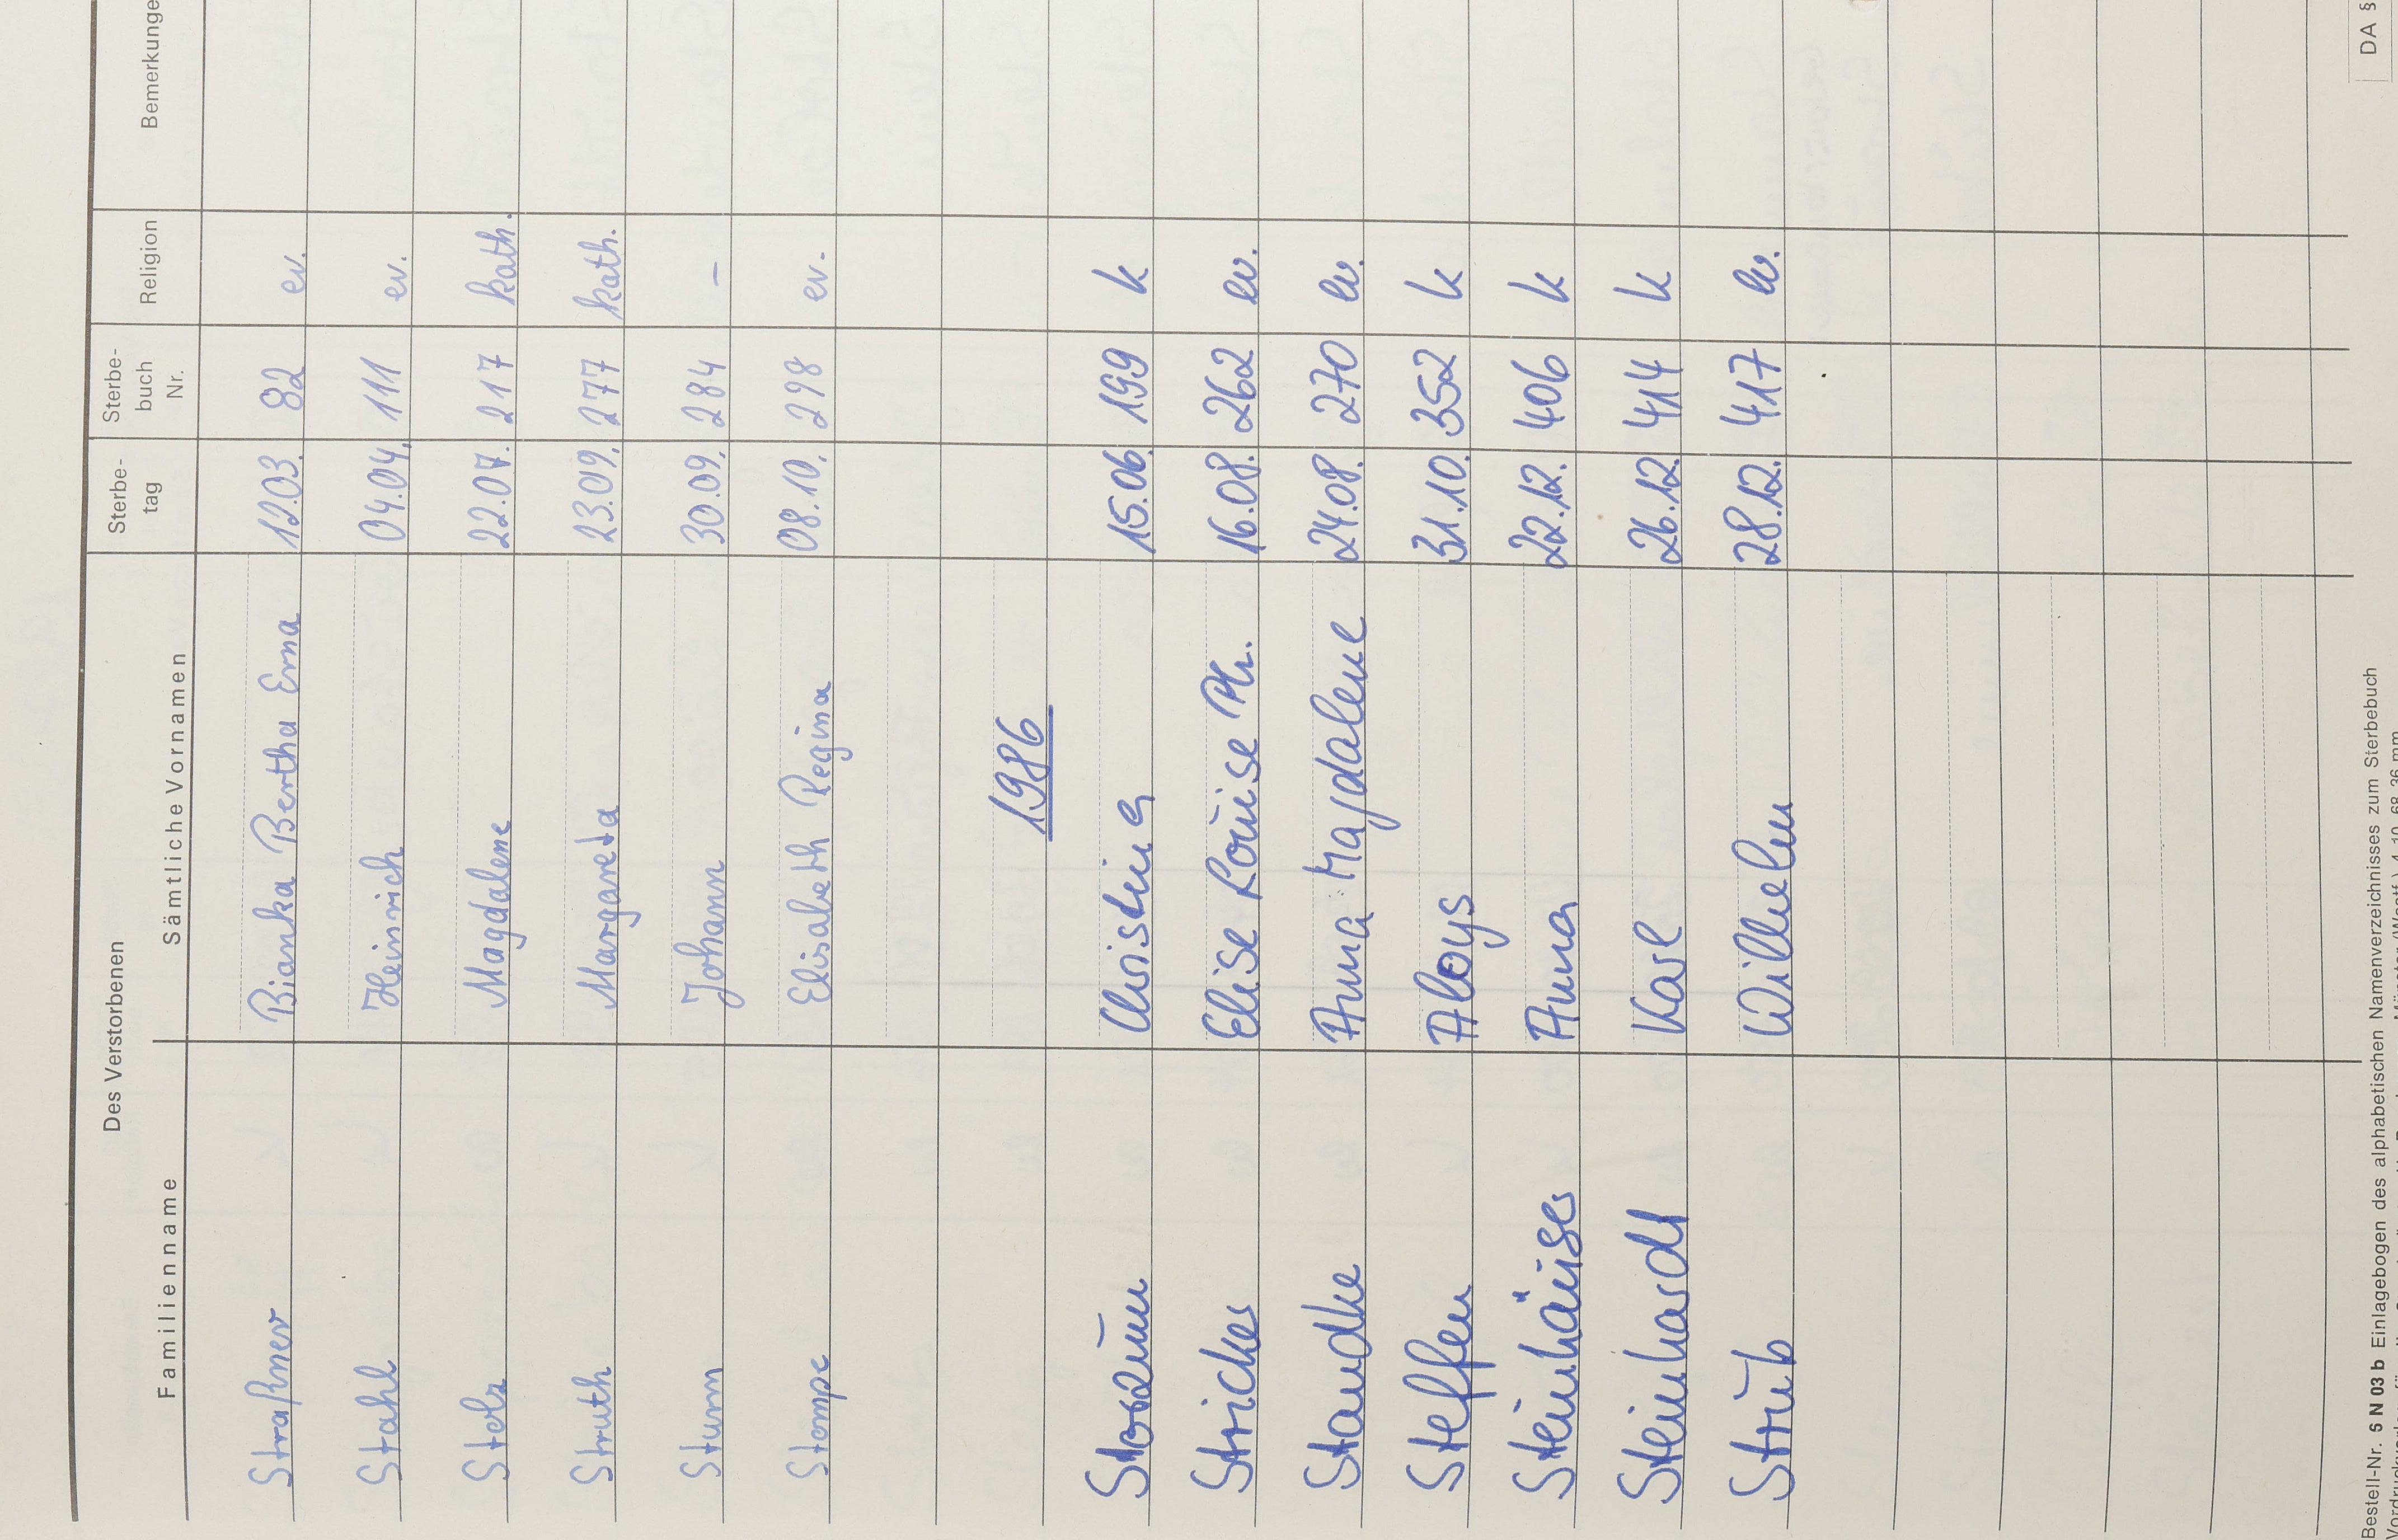 Des Verstorbenen
Familienname Sämtliche Vornamen Sterbe-tag Sterbe-buch Nr. Religion Bemerkunge
Straßner Bianka Bertha Erna 12.03. 82 ev.
Stahl Heinrich 04.04. 111 ev.
Stolz Magdalene 22.07. 217 kath.
Struth Margareta 23.09. 277 kath.
Sturm Johann 30.09. 284 –
Stompe Elisabeth Regina 08.10. 298 ev.
1986
Christina 15.06. 199 k
Stricker Elise Louise Ph. 16.08. 262 ev.
Standke Anna Magdalene 24.08. 270 ev.
Steffen Aloys 31.10. 352 k
Steinhäuser Anna 22.12. 406 k
Steinhardt Karl 26.12. 414 k
Strub Wilhelm 28.12. 417 ev.
Bestell-Nr. S N 03 b Einlagebogen des alphabetischen Namenverzeichnisses zum Sterbebuch
DA §